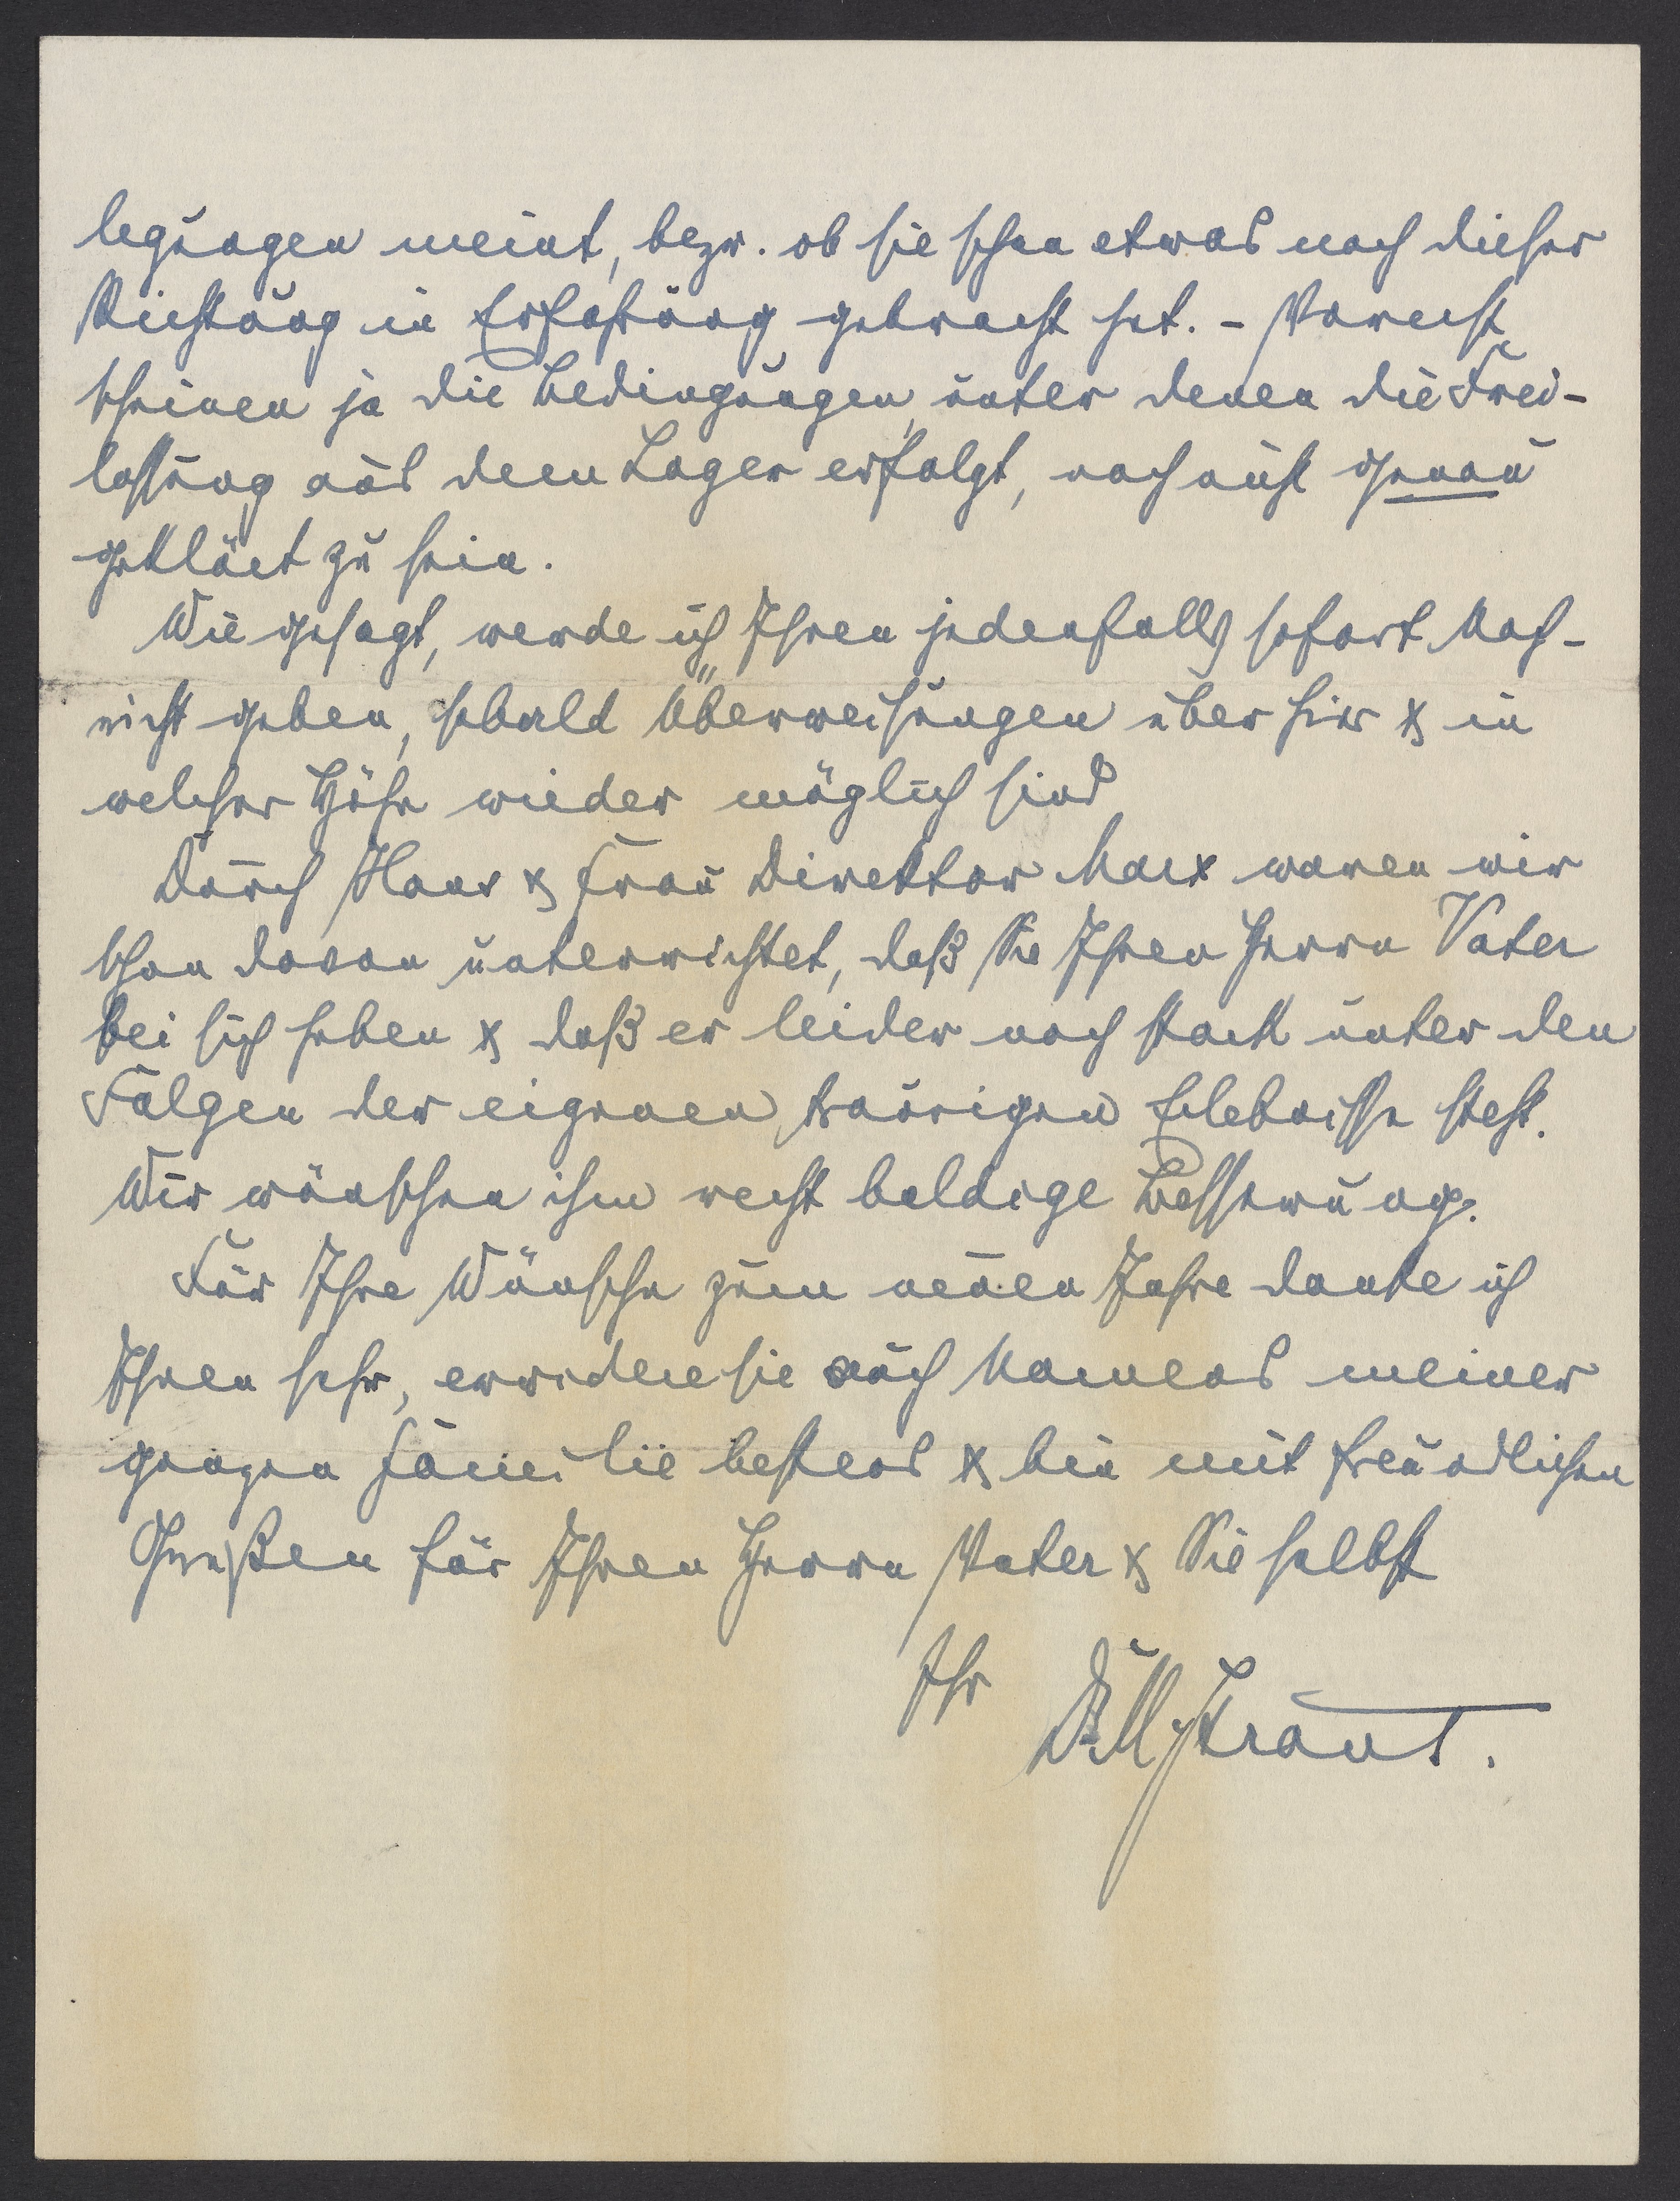 legungen meint, bezw. ob sie schon etwas nach dieser
Richtung in Erfahrung gebracht hat. - Vorerst
scheinen ja die Bedingungen, unter denen die Frei-
lassung aus dem Lager erfolgt, noch nicht genau
geklärt zu sein.
Wie gesagt, werde ich Ihnen jedenfalls sofort Nach-
richt geben, sobald Überweisungen über hier & in
welcher Höhe wieder möglich sind
Durch Hans & Frau Direktor Marx waren wir
schon davon unterrichtet, daß Sie Ihren Herrn Vater
bei sich haben & daß er leider noch stark unter den
Folgen der eigenen, traurigen Erlebnisse steht.
Wir wünschen ihm recht baldige Besserung.
Für Ihre Wünsche zum neuen Jahre danke ich
Ihnen sehr, erwidere sie auch Namens meiner
ganzen Familie bestens & bin mit freundlichen
Grüßen für Ihren Herrn Vater & Sie selbst
Ihr